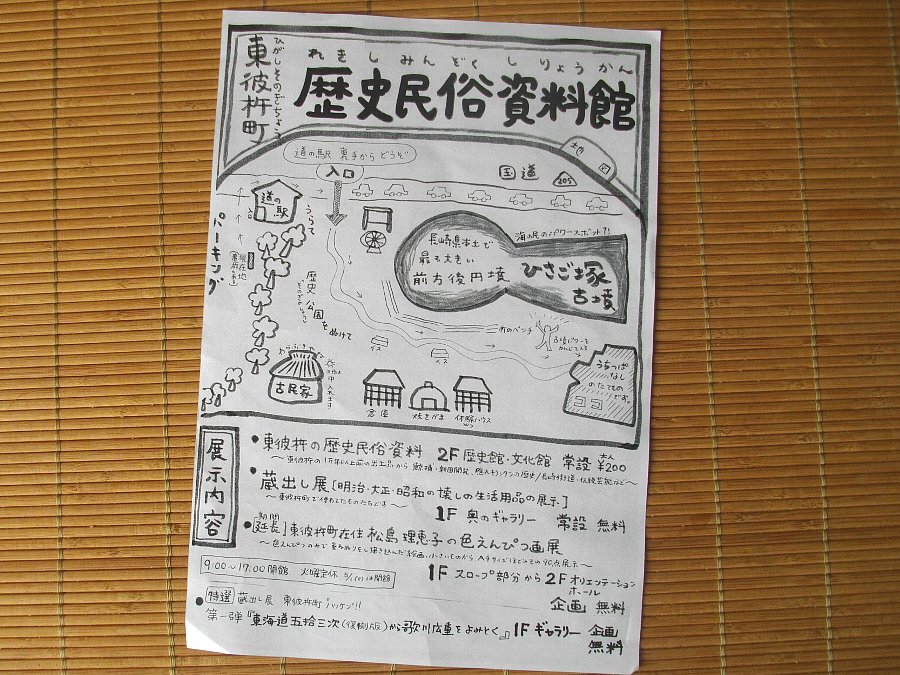 ひがしそのぎちょう
東彼杵町
れきしみんぞくしりょうかん
歴史民俗資料館
地図
道の駅 裏手からどうぞ
入口
国道
205
道の駅
パーキング
現在地
うらて
歴史公園をぬけて
長崎県本土で
最も大きい
前方後円墳
海の民のパワースポット?!
ひさご塚
古墳
石のベンチ
イス
イス
わらぶきやね
古民家
倉庫
焼きがま
休憩ハウス
うちっぱ
なし
のたてもの
です。
ココ
展示内容
●東彼杵の歴史民俗資料 2F 歴史館・文化館 常設 大人¥200
●蔵出し展[明治・大正・昭和の懐しの生活用品の展示]
〜東彼杵町で使われてたものたちです〜
1F 奥のギャラリー 常設 無料
●[期間延長]東彼杵町在住 松島理恵子の色えんぴつ画展
1F スロープ部分から2F オリエンテーションホール
企画 無料
9:00〜17:00開館 火曜定休
●[特選]蔵出し展 東彼杵町"ハッケン"!!
第一弾『東海道五拾三次(復刻版)から歌川広重をよみとく。』1F ギャラリー 企画 無料